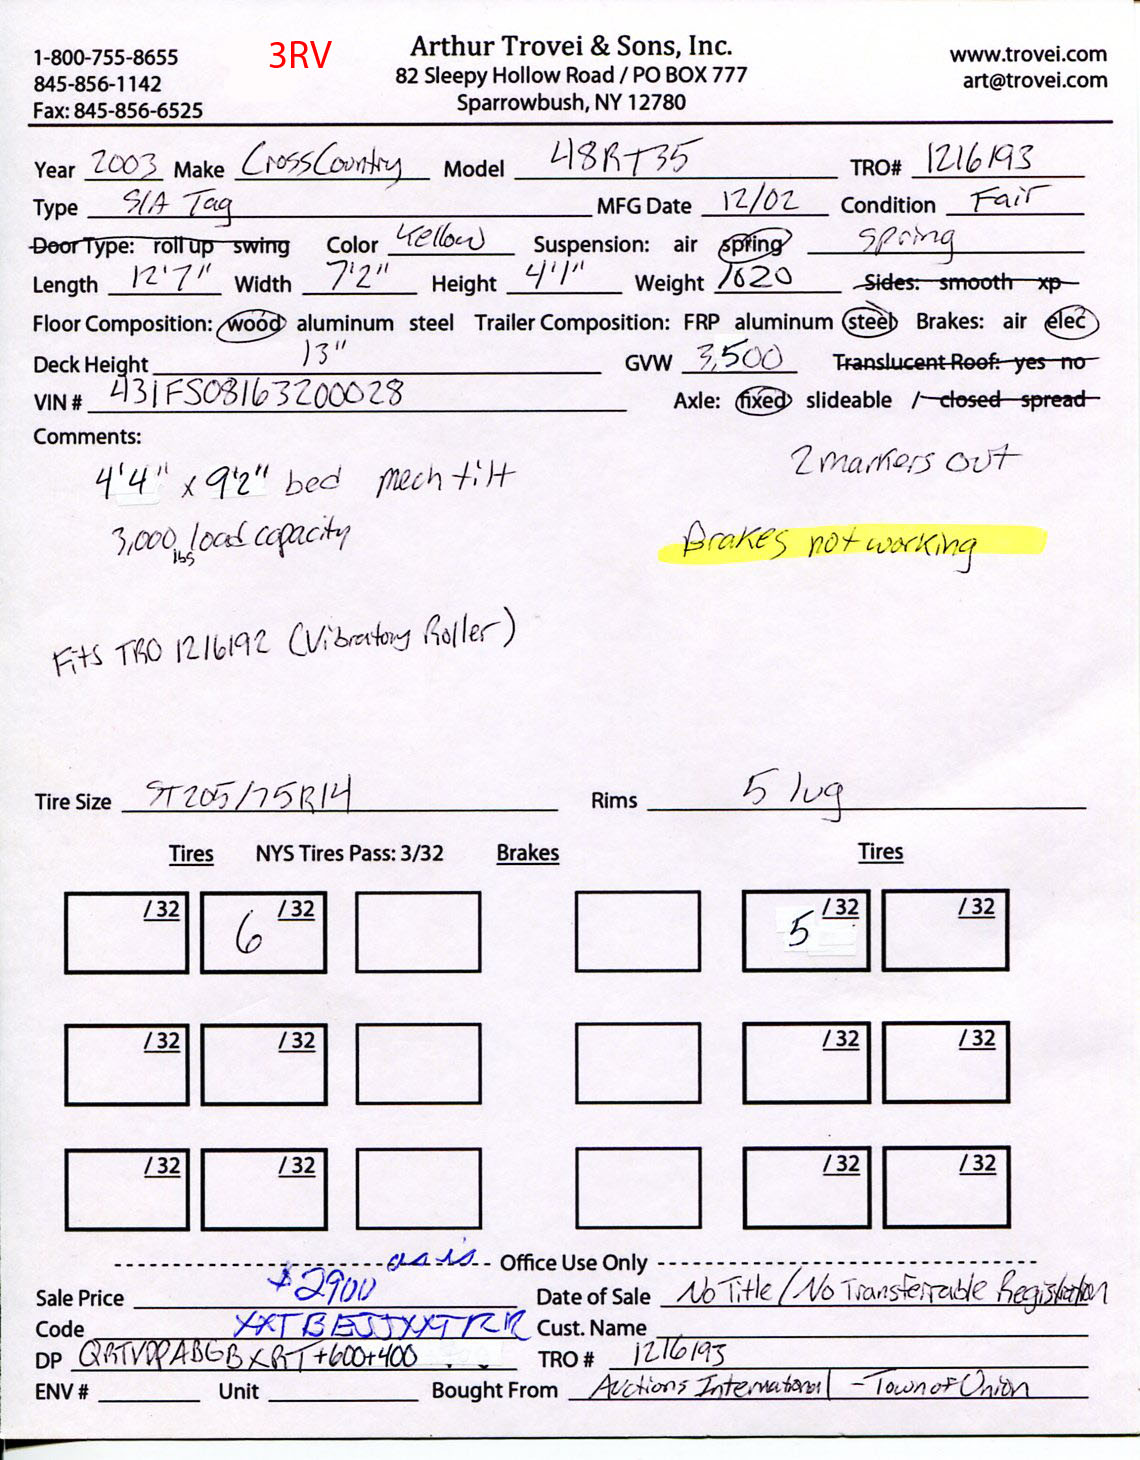 1-800-755-8655 3RV Arthur Trovei & Sons, Inc. www.trovei.com
845-856-1142 82 Sleepy Hollow Road / PO BOX 777 art@trovei.com
Fax: 845-856-6525 Sparrowbush, NY 12780
Year 2003 Make CrossCountry Model 48RT35 TRO# 1216193
Type S/A Tag MFG Date 12/02 Condition Fair
Door Type: roll up swing Color Yellow Suspension: air spring spring
Length 12'7" Width 7'2" Height 4'1" Weight 1620 Sides: smooth xp
Floor Composition: wood aluminum steel Trailer Composition: FRP aluminum steel Brakes: air elec
Deck Height 13" GVW 3,500 Translucent Roof: yes no
VIN # 431FS08163200028 Axle: fixed slideable / closed spread
Comments:
4'4" x 9'2" bed mech tilt 2 markers out
3,000 lbs load capacity Brakes not working
Fits TRO 1216192 (Vibratory Roller)
Tire Size ST205/75R14 Rims 5 lug
Tires NYS Tires Pass: 3/32 Brakes Tires
/32 6 /32 5 /32 /32
/32 /32 /32 /32
/32 /32 /32 /32
as is Office Use Only
Sale Price $2900 Date of Sale No Title / No Transferrable Registration
Code XXTBEJJXXTRR Cust. Name
DP +600+400 TRO # 1216193
ENV # Unit Bought From Auctions International - Town of Union